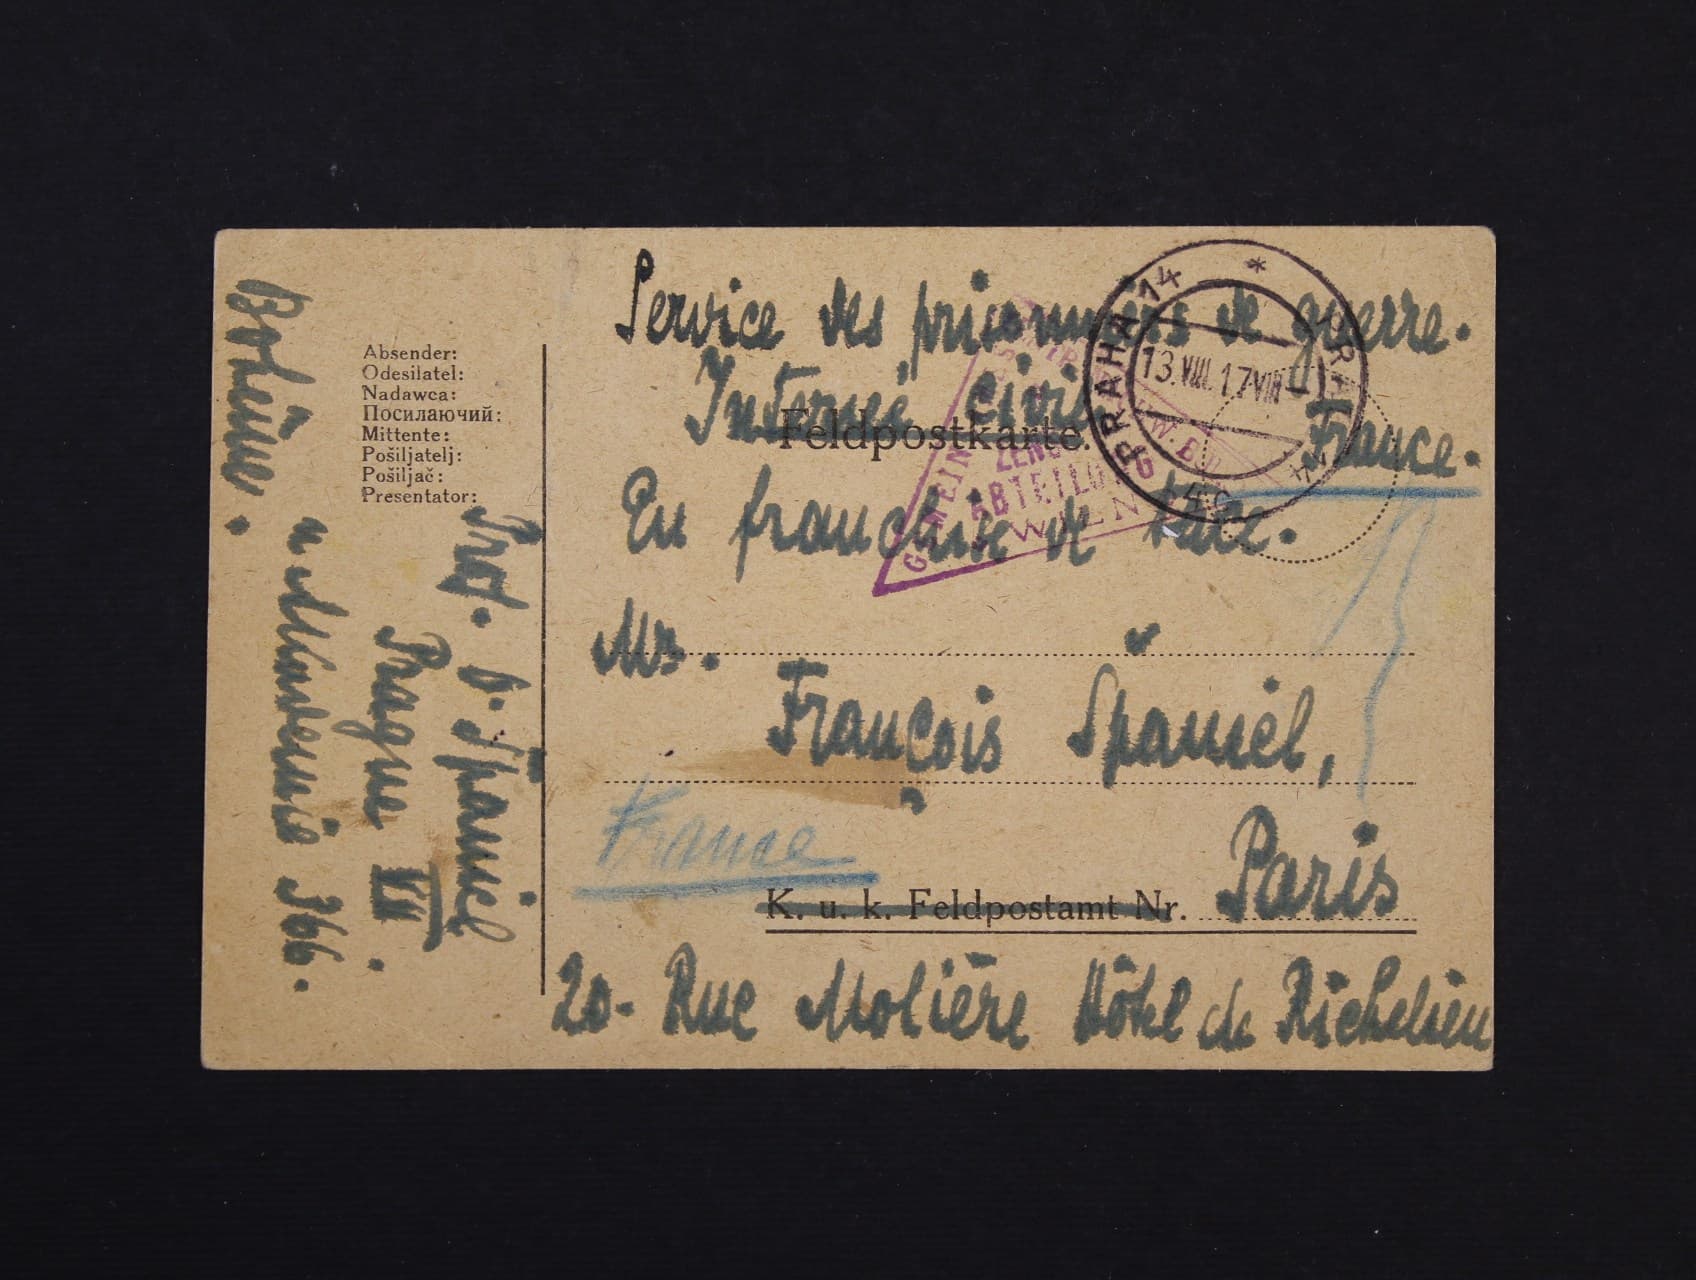 Service des prisonniers de guerre.
Interné civil France.
Feldpostkarte.
En franchise de taxe.
Mr.
François Španiel,
Paris
France
K. u. k. Feldpostamt Nr.
20. Rue Molière Hôtel de Richelieu
Absender:
Odesílatel:
Nadawca:
Посилаючий:
Mittente:
Pošiljatelj:
Pošiljač:
Presentator:
Prof. O. Španiel
Prague VII.
u Studánky 366.
Bohême.
PRAHA 14
13.VIII.17
ZENSUR
ABTEILUNG
WIEN